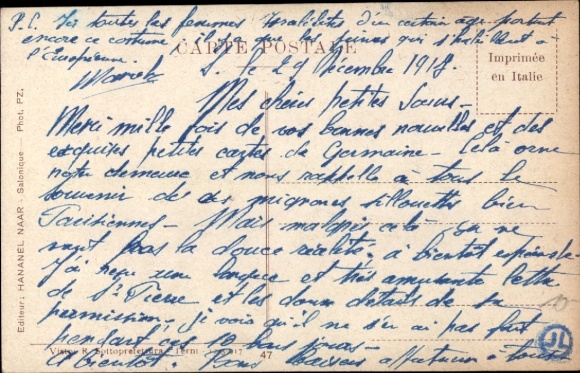 P.S. Ici toutes les femmes Israélites d'un certain âge portent
encore ce costume, il n'y a que les jeunes qui s'habillent à
l'Européenne.
CARTE POSTALE
Imprimée
en Italie
S. le 29 Décembre 1918.
Mes chères petites Soeurs -
Merci mille fois de vos bonnes nouvelles et des
exquises petites cartes de Germaine - Celà orne
notre demeure et nous rappelle à tous le
souvenir de ces mignonnes silhouettes bien
Parisiennes - Mais malgré celà ça ne
vaut pas la douce réalité: à bientôt espérons-le -
J'ai reçu une longue et très amusante lettre
de Pierre et les doux détails de sa
permission - je vois qu'il ne s'en ai pas fait
pendant ces 10 bons jours -
A bientôt. Bons baisers affectueux à toutes
Editeur: HANANEL NAAR - Salonique - Phot. PZ.
Visto R. Sottoprefettura Terni 917
47
10
JL